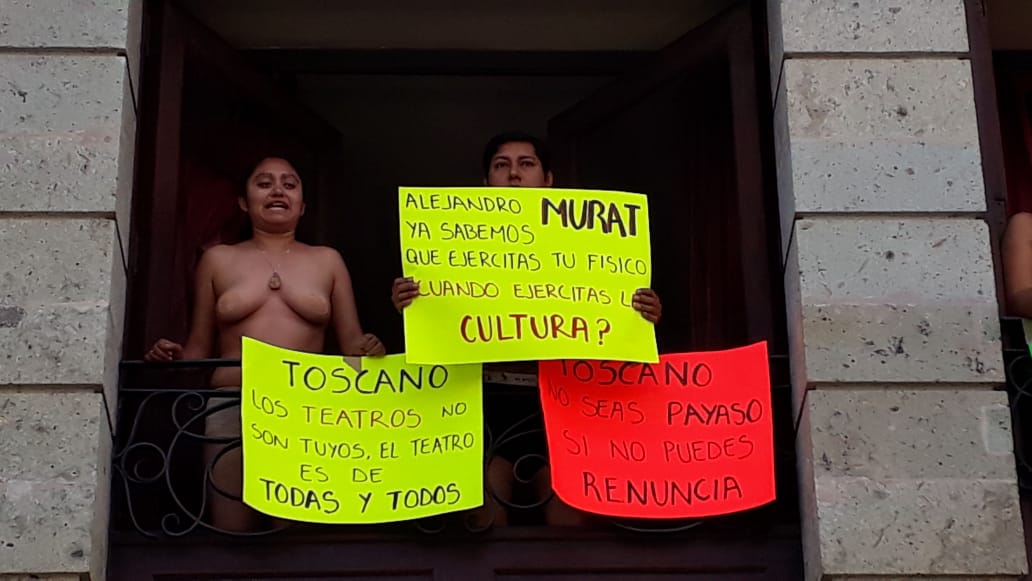 ALEJANDRO MURAT
YA SABEMOS
QUE EJERCITAS TU FISICO
CUANDO EJERCITAS L
CULTURA?
TOSCANO
LOS TEATROS NO
SON TUYOS, EL TEATRO
ES DE
TODAS Y TODOS
TOSCANO
NO SEAS PAYASO
SI NO PUEDES
RENUNCIA